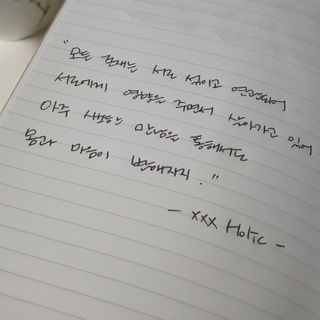 "모든 존재는 서로 섞이고 연관되어
서로에게 영향을 주면서 살아가고 있어
아주 사소한 만남을 통해서도
몸과 마음이 변해가지."
- xxx Holic -